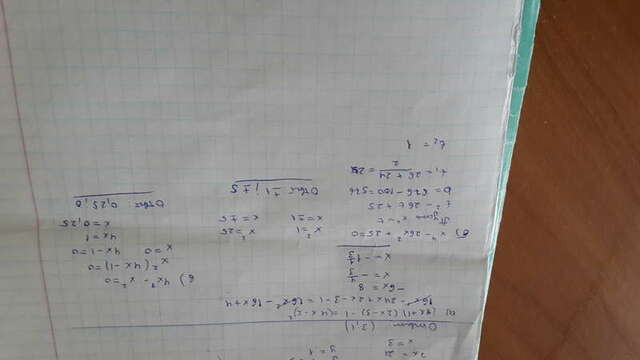 x = 3
y = 1
Ответ (3;1)
а) (8x+1)(2x-3)-1=(4x-2)²
16x²-24x+2x-3-1=16x²-16x+4
-6x=8
x=-4/3
x=-1 1/3
б) x⁴-26x²+25=0
Пусть x²=t
t²-26t+25
D=676-100=576
t₁=26+24/2=25
t₂=1
x²=1
x=±1
x²=25
x=±5
Ответ ±1; ±5
в) 4x³-x²=0
x²(4x-1)=0
x=0
4x-1=0
4x=1
x=0,25
Ответ 0,25; 0